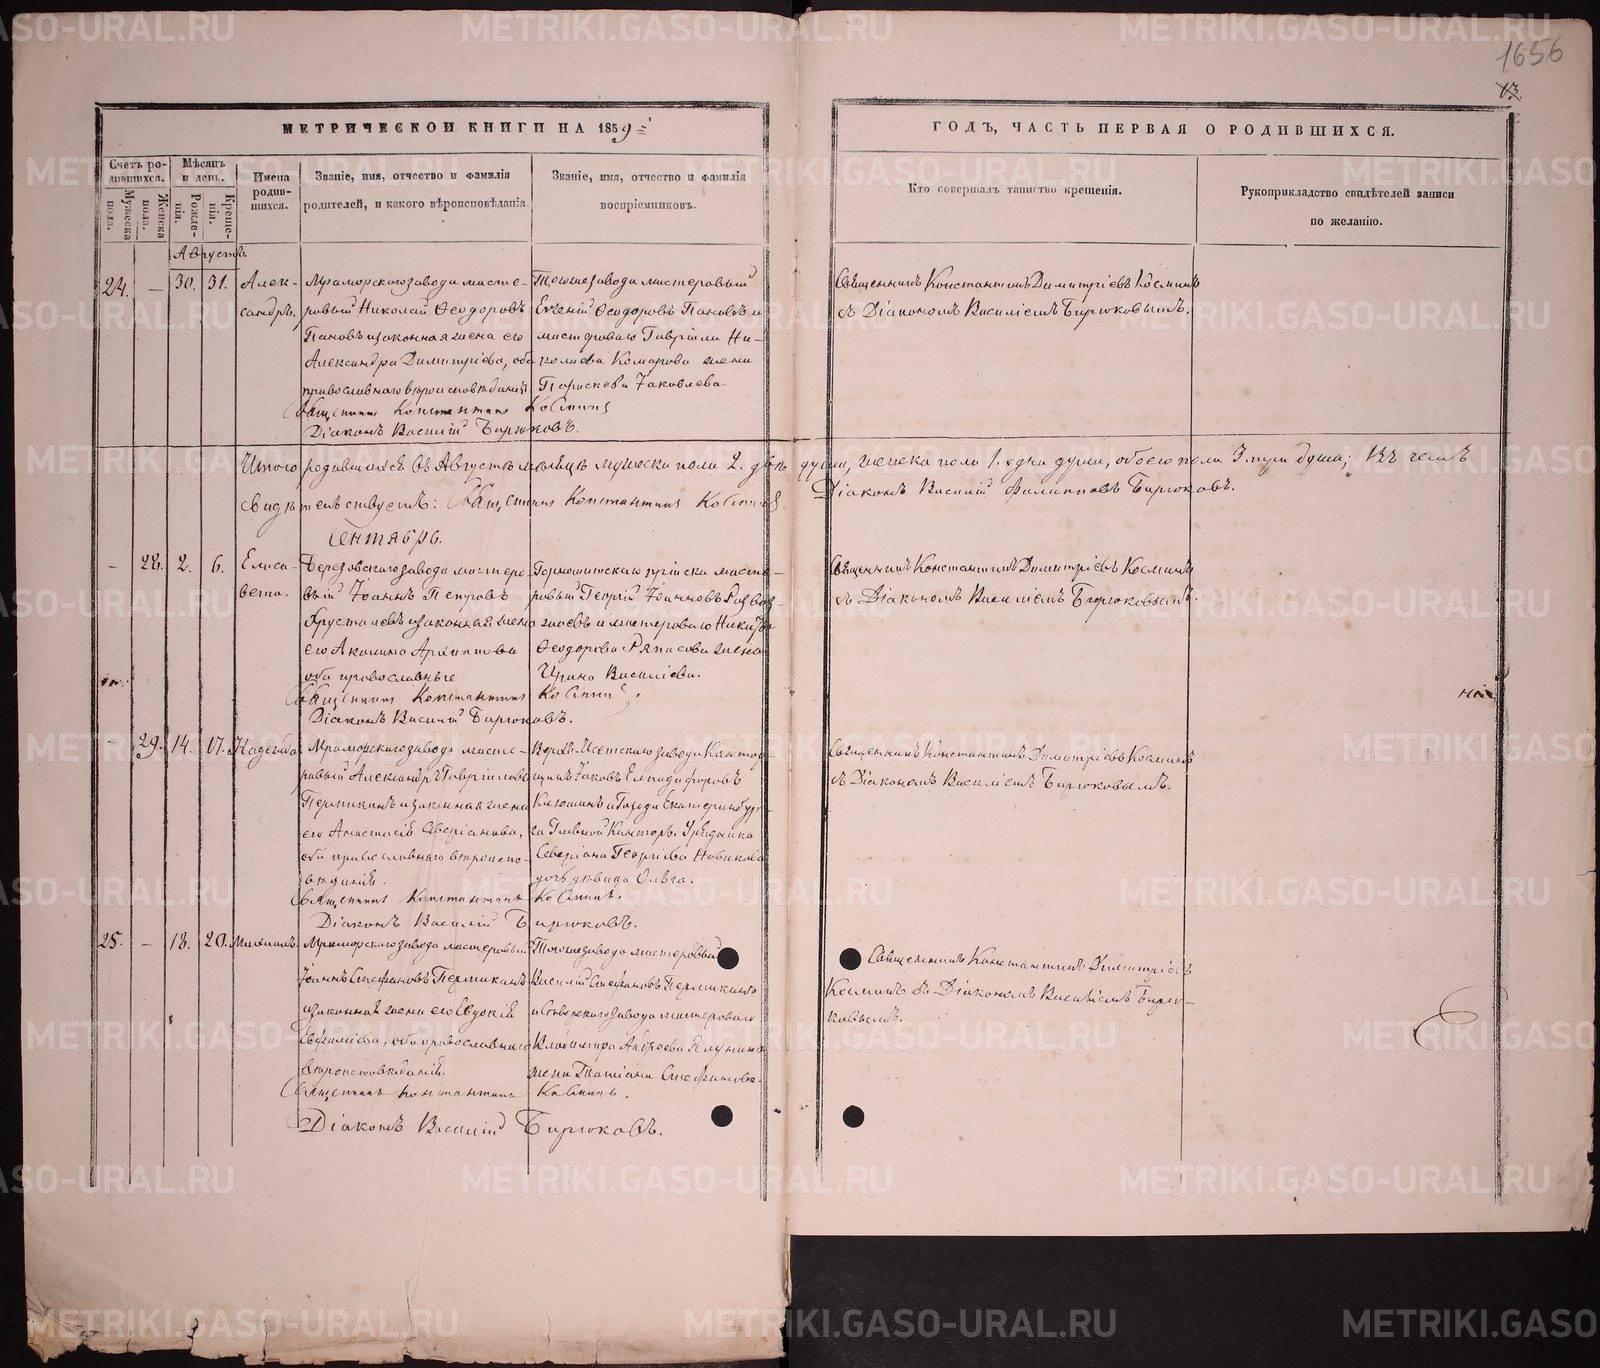 1656
13
МЕТРИЧЕСКОЙ КНИГИ НА 1859
ГОДЪ, ЧАСТЬ ПЕРВАЯ О РОДИВШИХСЯ.
Счетъ родившихся.
Мужеска пола.
Женска пола.
Мѣсяцъ и день.
Рожденія.
Крещенія.
Имена родившихся.
Званіе, имя, отчество и фамилія
родителей, и какого вѣроисповѣданія.
Званіе, имя, отчество и фамилія
воспріемниковъ.
Кто совершалъ таинство крещенія.
Рукоприкладство свидѣтелей записи
по желанію.
Августъ.
24. — 30. 31. Александръ,
Мраморскаго завода мастеровый Николай Ѳеодоровъ
Пановъ и законная жена его
Александра Димитріева, оба
православнаго вѣроисповѣданія
Тогоже завода мастеровый
Евгеній Ѳеодоровъ Пановъ и
мастероваго Гавріила Николаева Комарова жена
Параскева Іаковлева.
Священникъ Константинъ Димитріевъ Косминъ
съ Діакономъ Василіемъ Бирюковымъ.
Священникъ Константинъ Косминъ
Діаконъ Василій Бирюковъ.
Итого родившихся въ Августѣ мѣсяцѣ мужеска пола 2. двѣ души, женска пола 1. одна душа, обоего пола 3 три души; въ чемъ
Свидѣтельствуемъ: Священникъ Константинъ Косминъ.
Діаконъ Василій Филипповъ Бирюковъ.
Сентябрь.
— 28. 2. 6. Елисавета.
Березовскаго завода мастеровый Іоаннъ Петровъ
Хрусталевъ и законная жена
его Акилина Архиппова
оба православные
Горнощитскаго пріиска мастеровый Георгій Іоанновъ
Ѳеодорова жена
Ирина Василіева.
Священникъ Константинъ Димитріевъ Косминъ
съ Діакономъ Василіемъ Бирюковымъ.
Священникъ Константинъ Косминъ.
Діаконъ Василій Бирюковъ.
— 29. 14. 17. Надежда
Мраморскаго завода мастеровый Александръ Гавріиловъ
Пермикинъ и законная жена
его Анастасія Аверіанова,
оба православнаго вѣроисповѣданія.
Верхъ-Исетскаго завода
Іаковъ
Клюшинъ и Города Екатеринбурга Главной Конторы Урядника
Севиріана Георгіева Новикова
дочь дѣвица Ольга.
Священникъ Константинъ Димитріевъ Косминъ
съ Діакономъ Василіемъ Бирюковымъ.
Священникъ Константинъ Косминъ.
Діаконъ Василій Бирюковъ.
25. — 18. 20. Михаилъ.
Мраморскаго завода мастеровый
Іоаннъ Стефановъ Пермикинъ
и законная жена его Евдокія
Евфиміева, оба православнаго
вѣроисповѣданія.
Тогоже завода мастеровый
Василій Стефановъ Пермикинъ
и Сысертскаго завода мастероваго
Владимира Андреева Ялунина
жена Татіана Стефанова.
Священникъ Константинъ Димитріевъ
Косминъ съ Діакономъ Василіемъ Бирюковымъ.
Священникъ Константинъ Косминъ.
Діаконъ Василій Бирюковъ.
METRIKI.GASO-URAL.RU